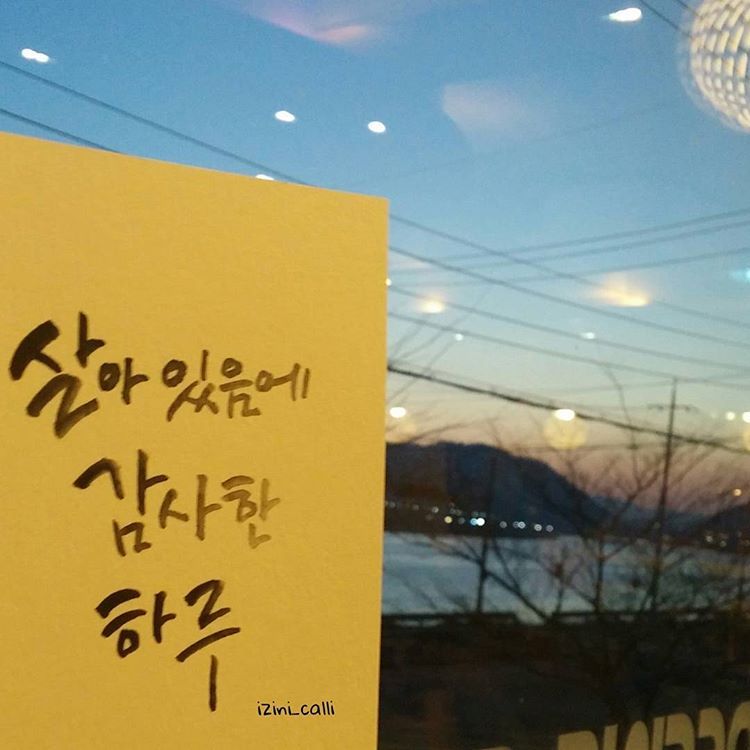 살아 있음에
감사한
하루
izini_calli